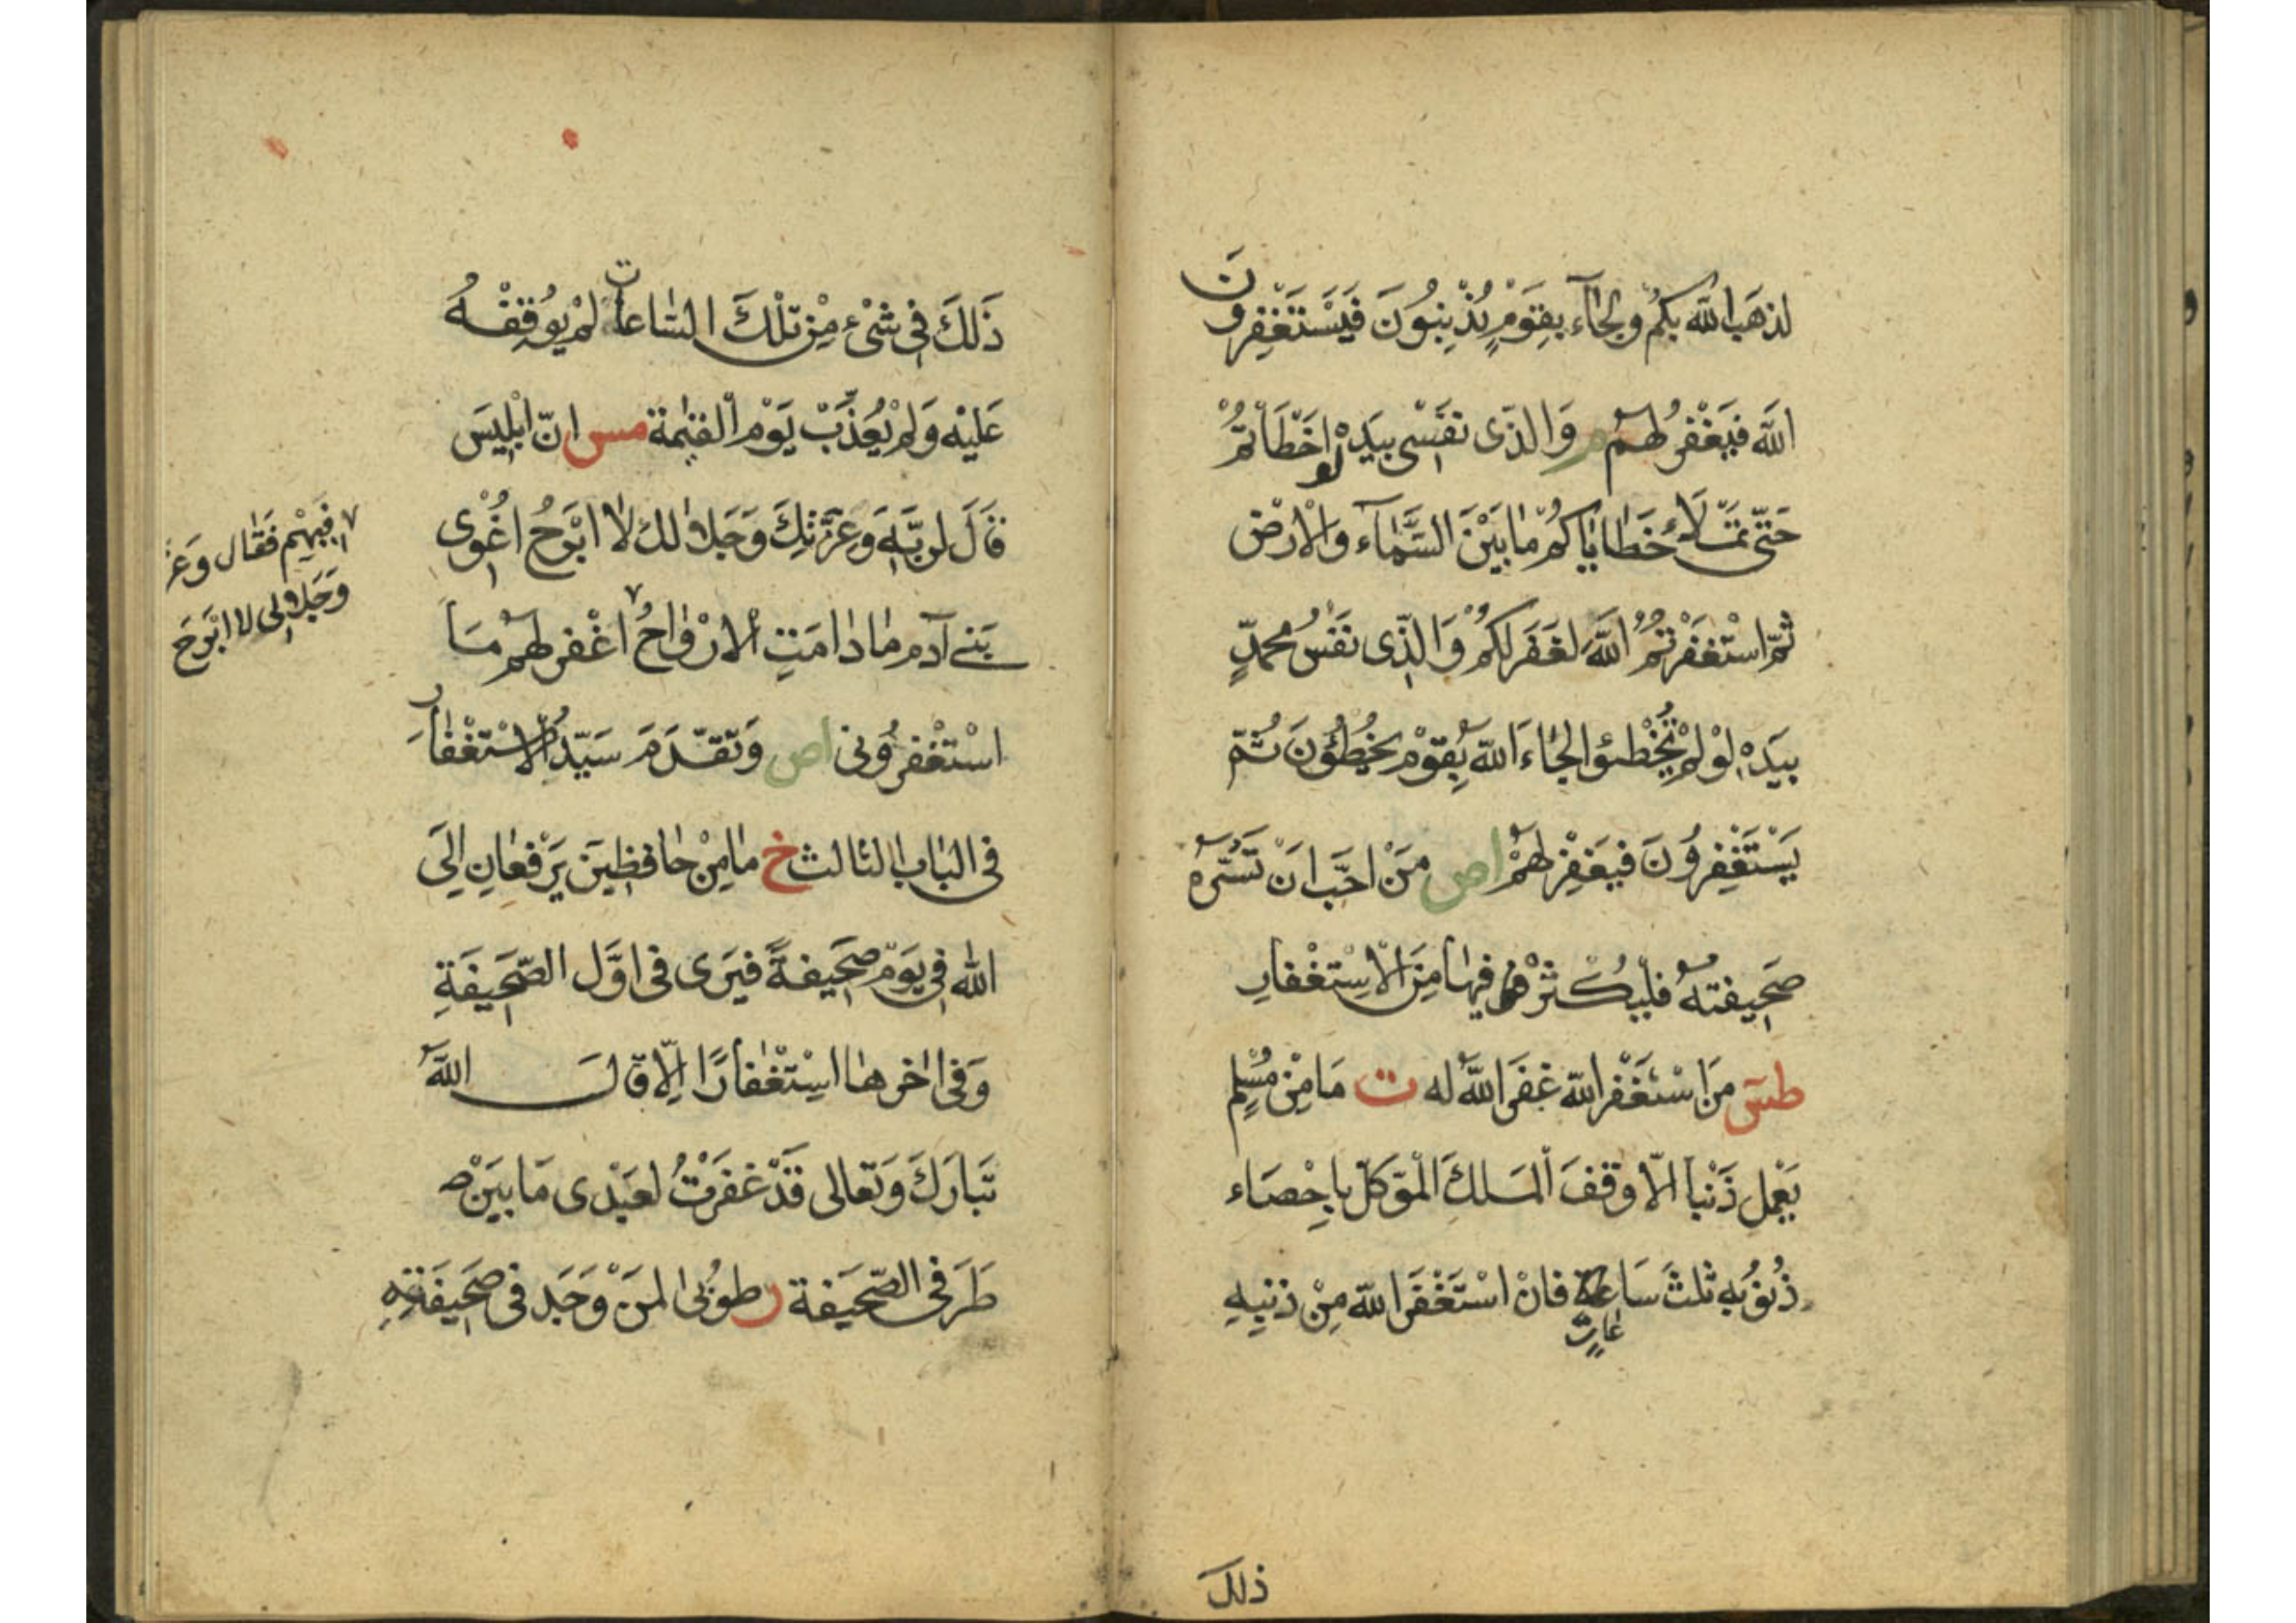 لذهَبَ اللّٰه بكُم ولجَآءَ بقَومٍ يُذْنِبُونَ فيَسْتَغْفِرونَ
اللّٰهَ فيَغْفرُ لهم م وَالذّى نفسْى بيَدِهْ لو اخْطَأْتُمْ
حَتّى تَمْلَاءُ خَطاياكُم مٰابَيْنَ السَّمٰآءِ والْارْضِ
ثمّ اسْتَغفَرْتُمُ اللّٰهَ لغَفَرَ لكُمْ وَالذِّى نفسُ محمدٍّ
بيَدهِ لوْ لمْ تُخْطئوا لجَاءَ اللّٰه بقَوْمٍ يخُطِئُونَ ثُمّ
يَسْتَغْفِرُونَ فيَغفِرْ لهمْ اص مَنْ احَبَّ انْ تَسُرَّهُ
صَحِيفتهُ فليُكثرْ فيهٰا مِنَ الْاسِتغْفارِ
طس مَن اسْتَغْفَر اللّٰه غفَر اللّٰهُ له ت مَا مِنْ مُسْلِمٍ
يَعْمل ذَنْباً الّا وقفَ الْمَلكَ الْمُوَكلّ باحِْصَاء
ذُنوُبهِ ثلثَ سَاعة فانْ اسْتَغْفَرَ اللّٰه مِنْ ذنبهِ
عاتٍ
ذلك
ذَلكَ فِى شىْءٍ مِنْ تلْكَ السّٰاعات لمْ يُوقِفْهُ
عَليْه وَلمْ يُعَذِّبْ يَوْم الْقيٰمة مس انّ ابْلِيسَ
قالَ لربِّهِ وَعِزَّتكَ وَجَلٰالك لا ابْرَحُ اغْوُى
بَنے آدم مٰادٰامَتِ الْارْوٰاحُ ٧ اغْفر لهُم مَا
اسْتغْفرُونى اص وَتقدّمَ سَيّدُ الْاسْتغْفٰار
فى البٰاب الثالث خ مٰا مِنْ حٰافظِينَ يَرْفعٰانِ اِلىَ
اللّٰه فِى يَوْمٍ صَحِيفةً فيَرٰى فى اوَّل الصّحَيفَةِ
وَفى اٰخرهٰا اسِْتغْفارًا اِلّا قالَ اللّٰهُ
تبَارَكَ وَتعَالى قدْ غفَرْتُ لعَبْدى مَا بيَنْ
طَرَفى الصّحَيفة ر طوُبٰى لمَنْ وَجَد فى صَحَيفَتِهِ
٧ فيهِمْ فقٰال وَعز
وَجَلٰالى لا ابْرَحَ